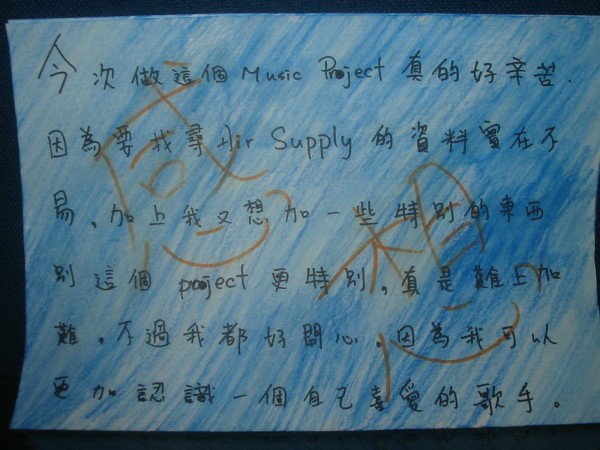 今次做這個 Music Project 真的好辛苦.
因為要找尋 Air Supply 的資料實在不
易,加上我又想加一些特別的東西
別這個 project 更特別,真是難上加
難。不過我都好開心。因為我可以
更加認識一個自己喜愛的歌手。
感想